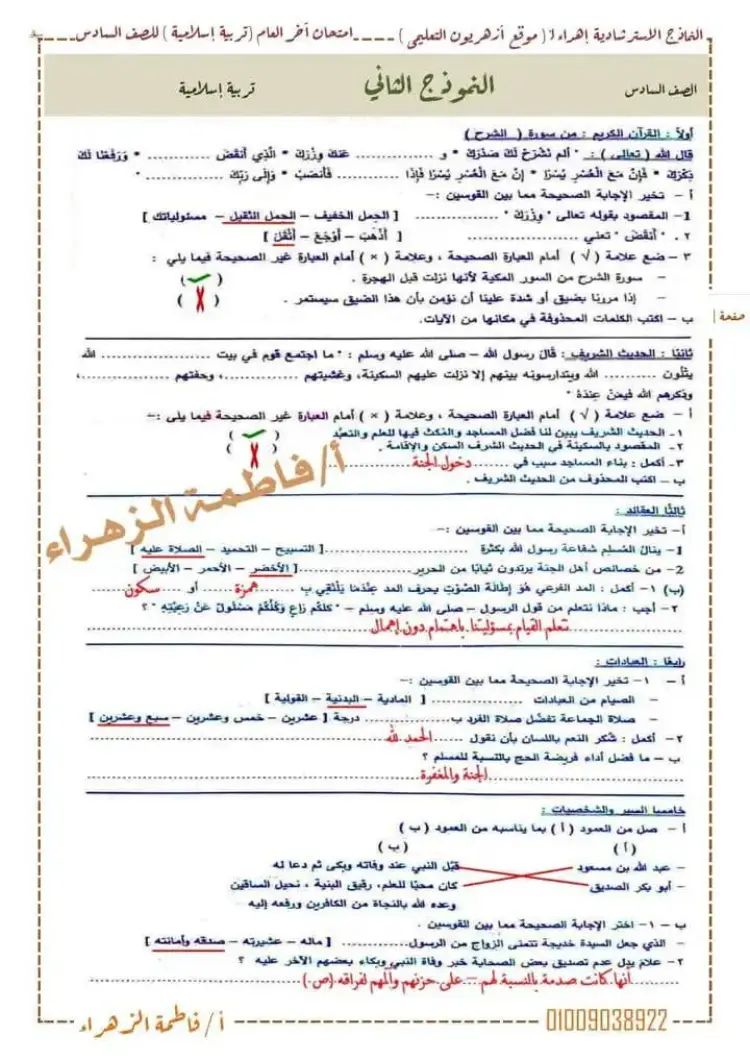 النماذج الاسترشادية إهراء 1 ( موقع أزهريون التعليمي ) ـــــ امتحان آخر العام (تربية إسلامية ) للصف السادس
الصف السادس النموذج الثاني تربية إسلامية
أولاً : القرآن الكريم : من سورة ( الشرح )
قال الله ( تعالى ) : " ألم نشرح لك صدرك * و ............... عنك وزرك * الذي أنقض ............ * ورفعنا لك
ذكرك * فإن مع العسر يسرًا * إن مع العسر يسرًا فإذا ............... فأنصب * وإلى ربك ............... "
أ – تخير الإجابة الصحيحة مما بين القوسين :-
1- المقصود بقوله تعالى " وزرك " ............... [ الحمل الخفيف – الحمل الثقيل – مسئولياتك ]
2 . " أنقض " تعني ............... [ أذهب – أوجع – أثقل ]
3 – ضع علامة ( √ ) أمام العبارة الصحيحة ، وعلامة ( × ) أمام العبارة غير الصحيحة فيما يلي :
– سورة الشرح من السور المكية لأنها نزلت قبل الهجرة . ( ✓ )
– إذا مررنا بضيق أو شدة علينا أن نؤمن بأن هذا الضيق سيستمر . ( X )
ب – اكتب الكلمات المحذوفة في مكانها من الآيات.
صفحة 1
ثانيًا : الحديث الشريف : قال رسول الله – صلى الله عليه وسلم : " ما اجتمع قوم في بيت ............... الله
يتلون ............ الله ويتدارسونه بينهم إلا نزلت عليهم السكينة، وغشيتهم ............، وحفتهم ............،
وذكرهم الله فيمن عنده "
أ – ضع علامة ( √ ) أمام العبارة الصحيحة ، وعلامة ( × ) أمام العبارة غير الصحيحة فيما يلي :–
1- الحديث الشريف يبين لنا فضل المساجد والمكث فيها للعلم والتعبد ( ✓ )
2- المقصود بالسكينة في الحديث الشرف السكن والإقامة . ( X )
3- أكمل : بناء المساجد سبب في ...... دخول الجنة ......
ب – اكتب المحذوف من الحديث الشريف .
أ/فاطمة الزهراء
ثالثًا العقائد :
أ– تخير الإجابة الصحيحة مما بين القوسين :–
1– ينال المُسلم شفاعة رسول الله بكثرة ............... [ التسبيح – التحميد – الصلاة عليه ]
2– من خصائص أهل الجنة يرتدون ثيابًا من الحرير ............... [ الأخضر – الأحمر – الأبيض ]
(ب) 1- أكمل : المد الفرعي هو إطالة الصوت بحرف المد عندما يلتقي ب ...... همزة ...... أو ...... سكون ......
2- أجب : ماذا نتعلم من قول الرسول – صلى الله عليه وسلم – " كلكم راع وكلكم مسئول عن رعيته " ؟
نتعلم القيام بمسؤليتنا باهتمام دون إهمال
رابعًا : العبادات :
أ – 1- تخير الإجابة الصحيحة مما بين القوسين :–
– الصيام من العبادات ............... [ المادية – البدنية – القولية ]
– صلاة الجماعة تفضل صلاة الفرد ب............... درجة [ عشرين – خمس وعشرين – سبع وعشرين ]
2- أكمل : شكر النعم باللسان بأن نقول ...... الحمد لله ......
ب – ما فضل أداء فريضة الحج بالنسبة للمسلم ؟
الجنة والمغفرة
خامسا السير والشخصيات :
أ – صل من العمود ( أ ) بما يناسبه من العمود ( ب )
( أ ) ( ب )
– عبد الله بن مسعود قبّل النبي عند وفاته وبكى ثم دعا له
– أبو بكر الصديق كان محبًا للعلم، رقيق البنية ، نحيل الساقين
وعده الله بالنجاة من الكافرين ورفعه إليه
ب – 1- اختر الإجابة الصحيحة مما بين القوسين .
– الذي جعل السيدة خديجة تتمنى الزواج من الرسول............ [ ماله – عشيرته – صدقه وأمانته ]
2- علام يدل عدم تصديق بعض الصحابة خبر وفاة النبي وبكاء بعضهم الآخر عليه ؟
أنها كانت صدمة بالنسبة لهم – على حزنهم وألمهم لفراقه (ص)
أ/ فاطمة الزهراء 01009038922